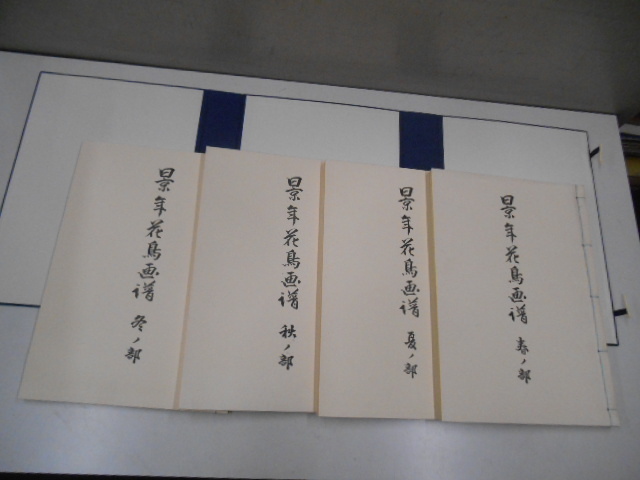 景年花鳥画譜 春ノ部
景年花鳥画譜 夏ノ部
景年花鳥画譜 秋ノ部
景年花鳥画譜 冬ノ部